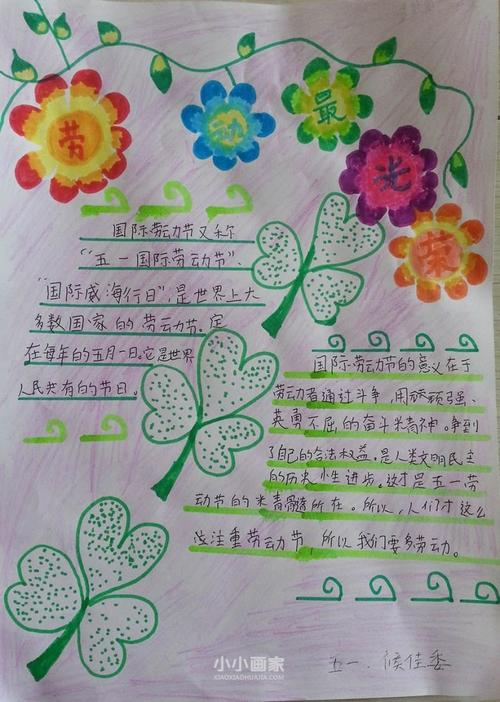 劳动最光荣
国际劳动节又称
“五一国际劳动节”、
“国际威海行日”,是世界上大
多数国家的劳动节。定
在每年的五月一日。它是世界
人民共有的节日。
国际劳动节的意义在于
劳动者通过斗争,用顽强、
英勇不屈的奋斗精神。争到
了自己的合法权益。是人类文明民主
的历史性进步。这才是五一劳
动节的精髓所在。所以,人们才这么
注重劳动节,所以我们要多劳动。
五一.侯佳
小小画家
XIAOXIAOHUAJIA.COM